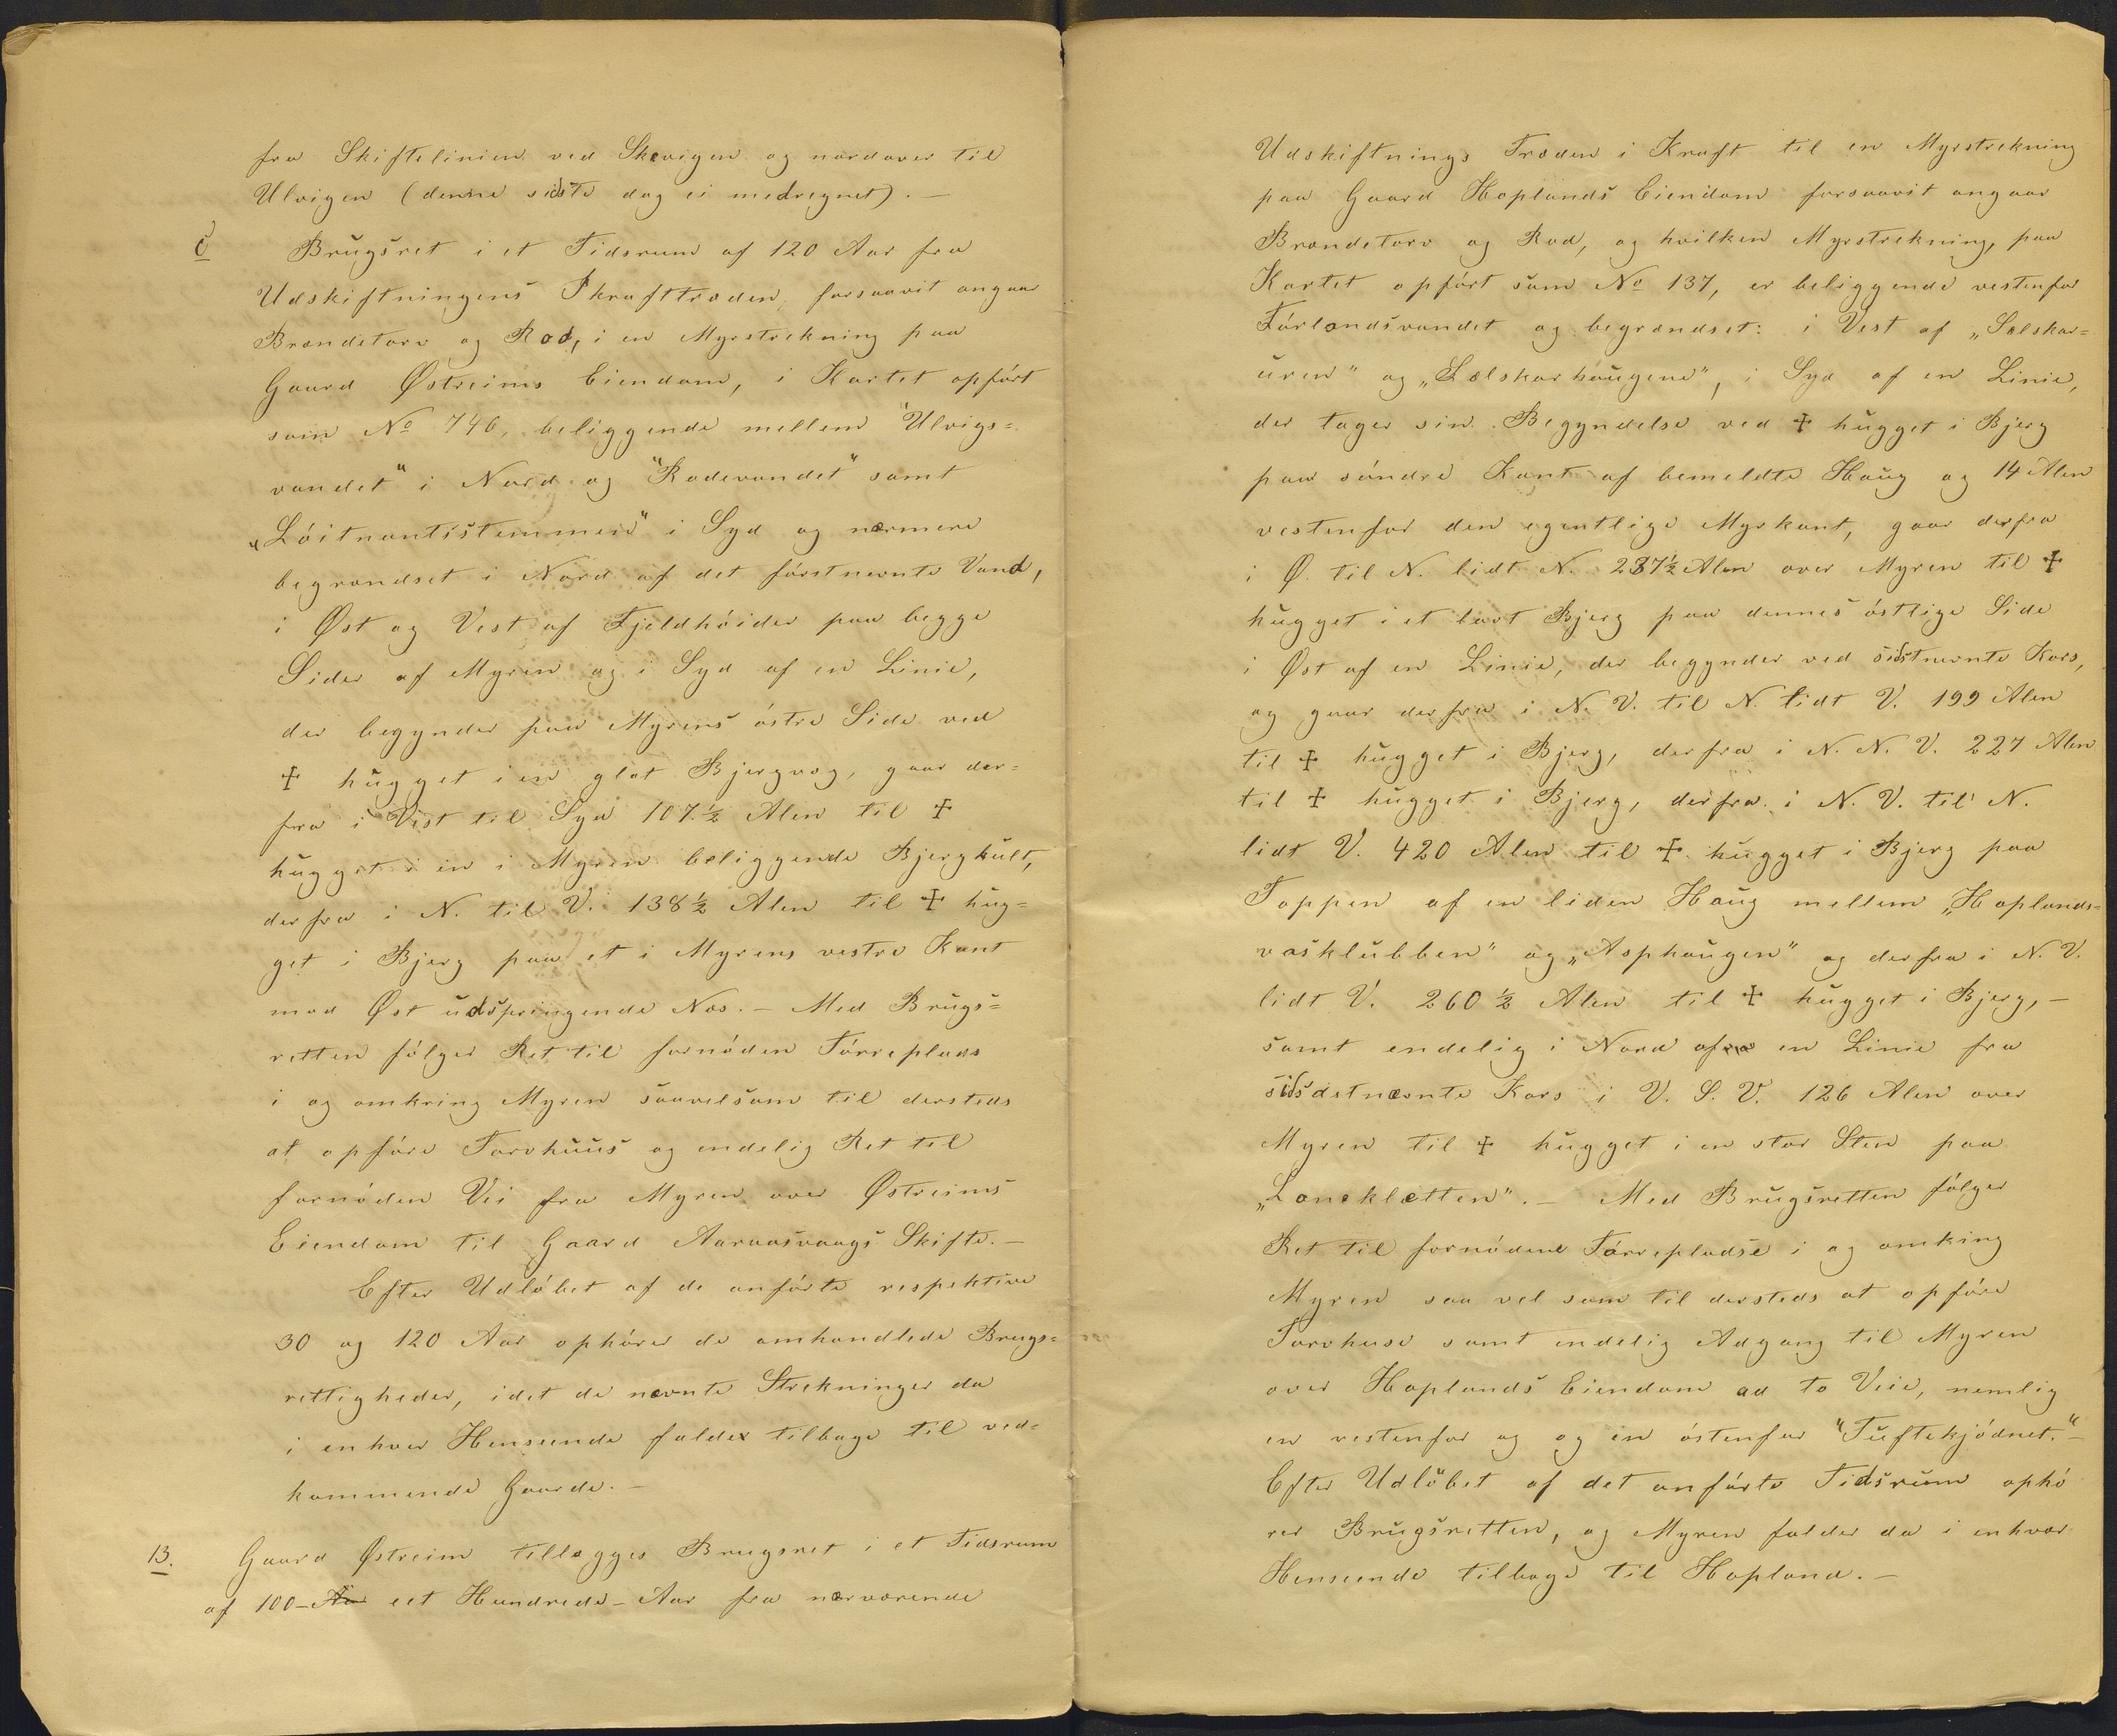 fra Skiftelinien ved Skevigen og nordover til
Ulvigen (denne sidste dog ei medregnet). —
c
Brugsret i et Tidsrum af 120 Aar fra
Udskiftningens Ikrafttræden, forsaavit angaar
Brændetorv og Rod, i en Myrstrekning paa
Gaard Østreims Eiendom, i Kartet opført
som No 746, beliggende mellem "Ulvigs=
vandet" i Nord og "Rodevandet" samt
"Løitnantsstemmen" i Syd og nærmere
begrændset i Nord af det førstnevnte Vand,
i Øst og Vest af Fjeldhøider paa begge
Sider af Myren og i Syd af en Linie,
der begynder paa Myrens østre Side ved
☩ hugget i en glat Bjergvæg, gaar der=
fra i Vest til Syd 107 ½ Alen til ☩
hugget i en i Myren beliggende Bjergkult,
derfra i N. til V. 138 ½ Alen til ☩ hug=
get i Bjerg paa et i Myrens vestre Kant
mod Øst udspringende Næs. — Med Brugs=
retten følger Ret til fornøden Tørreplads
i og omkring Myren saavelsom til dersteds
at opføre Torvhuus og endelig Ret til
fornøden Vei fra Myren over Østreims
Eiendom til Gaard Aaraasvaags Skifte. —
Efter Udløbet af de anførte respektive
30 og 120 Aar ophører de omhandlede Brugs=
rettigheder, idet de nævnte Strekninger da
i enhver Henseende falder tilbage til ved=
kommende Gaarde. —
13. Gaard Østreim tillægges Brugsret i et Tidsrum
af 100 – Aar eet Hundrede – Aar fra nærværende
Udskiftnings Træden i Kraft til en Myrstrekning
paa Gaard Hoplands Eiendom forsaavit angaar
Brændetorv og Rod, og hvilken Myrstrekning, paa
Kartet opført som No 137, er beliggende vestenfor
Førlandsvandet og begrændset: i Vest af „Sælskar=
uren" og „Sælskarhaugene", i Syd af en Linie,
der tager sin Begyndelse ved ☩ hugget i Bjerg
paa søndre Kant af bemeldte Haug og 14 Alen
vestenfor den egentlige Myrkant, gaar derfra
i Ø. til N. lidt N. 237½ Alen over Myren til ☩
hugget i et lavt Bjerg paa dennes østlige Side
i Øst af en Linie, der begynder ved sidstnevnte Kors,
og gaar derfra i N. V. til N. lidt V. 199 Alen
til ☩ hugget i Bjerg, derfra i N. N. V. 227 Alen
til ☩ hugget i Bjerg, derfra i N. V. til N.
lidt V. 420 Alen til ☩ hugget i Bjerg paa
Toppen af en liden Haug mellem „Hoplands=
vasklubben" og „Asphaugen" og derfra i N. V.
lidt V. 260 ½ Alen til ☩ hugget i Bjerg, —
samt endelig i Nord af en Linie fra
sidsdstnævnte Kors i V. S. V. 126 Alen over
Myren til ☩ hugget i en stor Sten paa
„Loneklætten". — Med Brugsretten følger
Ret til fornødene Tørrepladse i og omking
Myren saa vel som til dersteds at opføre
Torvhuse samt endelig Adgang til Myren
over Hoplands Eiendom ad to Veie, nemlig
en vestenfor og og en østenfor "Tuftekjødnet." —
Efter Udløbet af det anførte Tidsrum ophø
rer Brugsretten, og Myren falder da i enhver
Henseende tilbage til Hopland. —